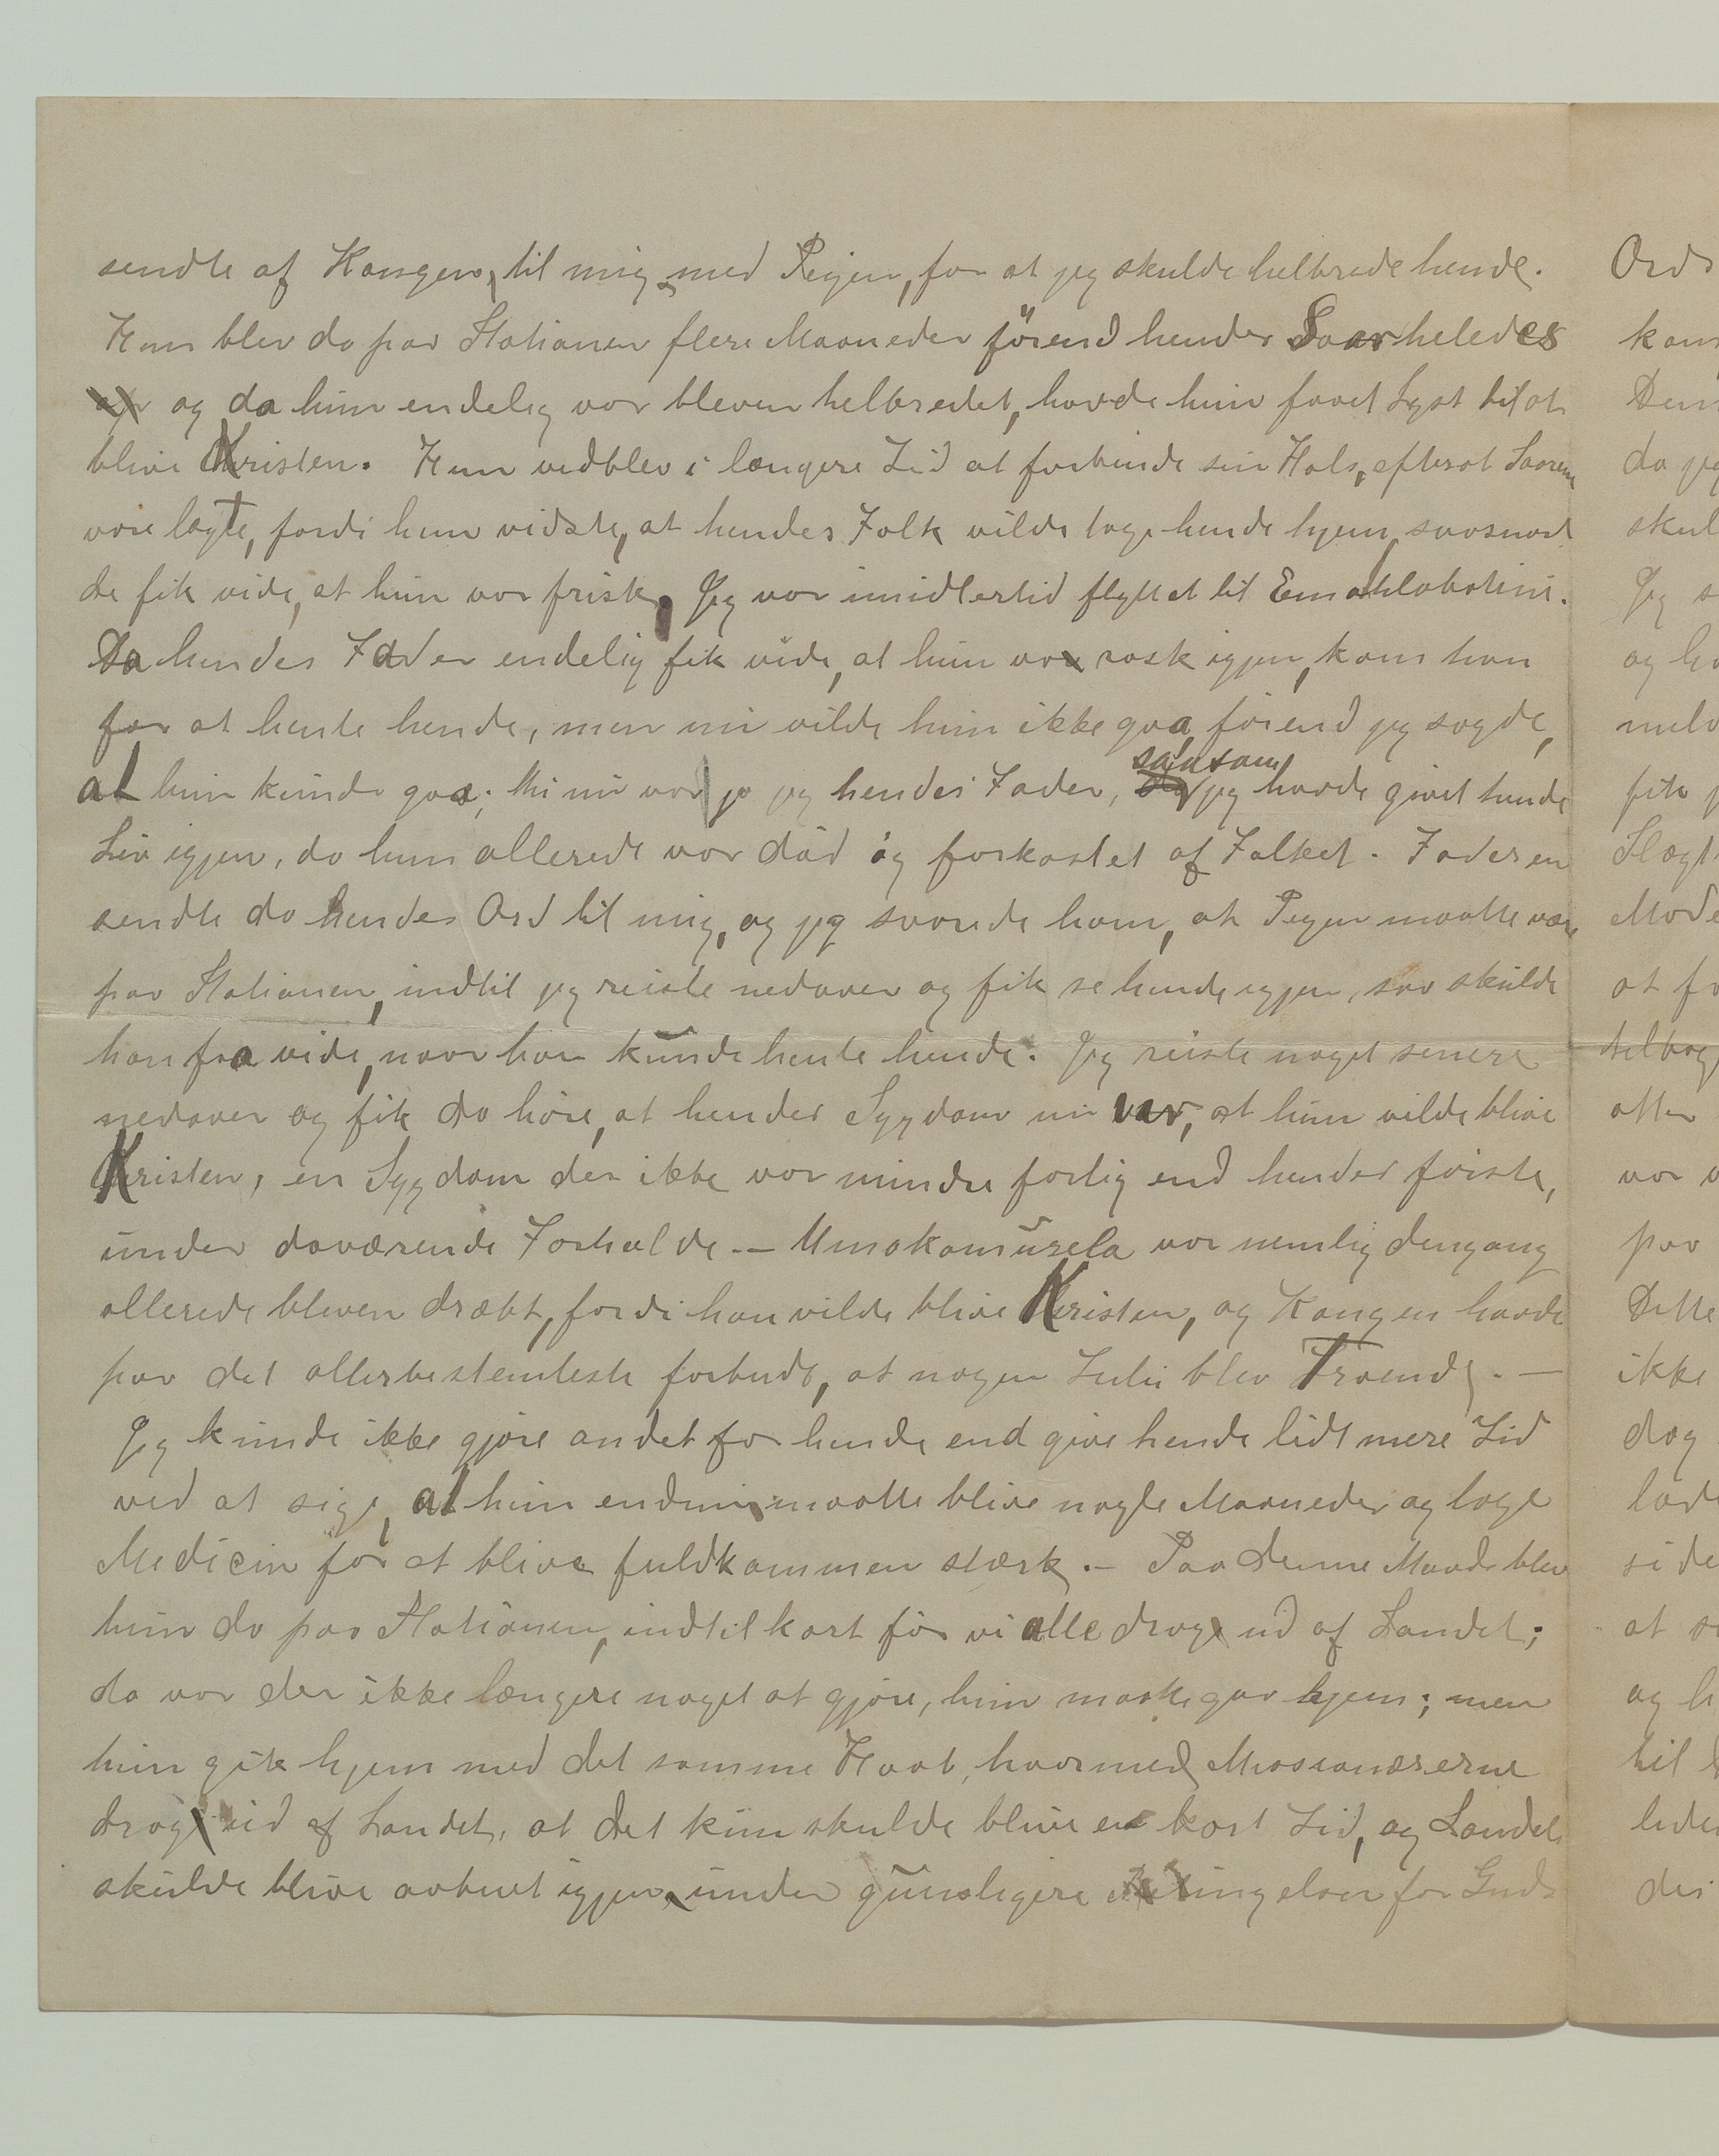 sendte af Kongen, til mig med Pigen, for at jeg skulde helbrede hende.
Hun blev da paa Stationen flere Maaneder førend hendes Saar heledes
og da hun endelig var bleven helbredet, havde hun faaet Lyst til at
blive Kristen. Hun vedblev i længere Tid at forbinde sin Hals, efterat Saarene
vare lægte, fordi hun vidste, at hendes Folk vilde tage hende hjem, saasnart
de fik vide, at hun var frisk. Jeg var imidlertid flyttet til Emahlabatini.
Da hendes Fader endelig fik vide, at hun var rask igjen, kom han
for at hente hende, men nu vilde hun ikke gaa, førend jeg sagde,
at hun kunde gaa; thi nu var jo jeg hendes Fader, saasom jeg havde givet hende
Liv igjen, da hun allerede var død og forkastet af Folket. Faderen
sendte da hendes Ord til mig, og jeg svarede ham, at Pigen maatte være
paa Stationen, indtil jeg reiste nedover og fik se hende igjen, saa skulde
han faa vide, naar han kunde hente hende. Jeg reiste noget senere
nedover og fik da høre, at hendes Sygdom nu var, at hun vilde blive
Kristen, en Sygdom der ikke var mindre farlig end hendes første,
under daværende Forholde. — Umakamusela var nemlig dengang
allerede bleven dræbt, fordi han vilde blive Kristen, og Kongen havde
paa det allerbestemteste forbudt, at nogen Zulu blev Troende. —
Jeg kunde ikke gjøre andet for hende end give hende lidt mere Tid
ved at sige, at hun endnu maatte blive nogle Maaneder og tage
Medicin for at blive fuldkommen stærk. — Paa denne Maade blev
hun da paa Stationen, indtil kort før vi alle drog ud af Landet;
da var der ikke længere noget at gjøre, hun maatte gaa hjem; men
hun gik hjem med det samme Haab, hvormed Missionærerne
drog ud af Landet, at det kun skulde blive en kort Tid, og Landet
skulde blive aabnet igjen under gunstigere Betingelser for Guds